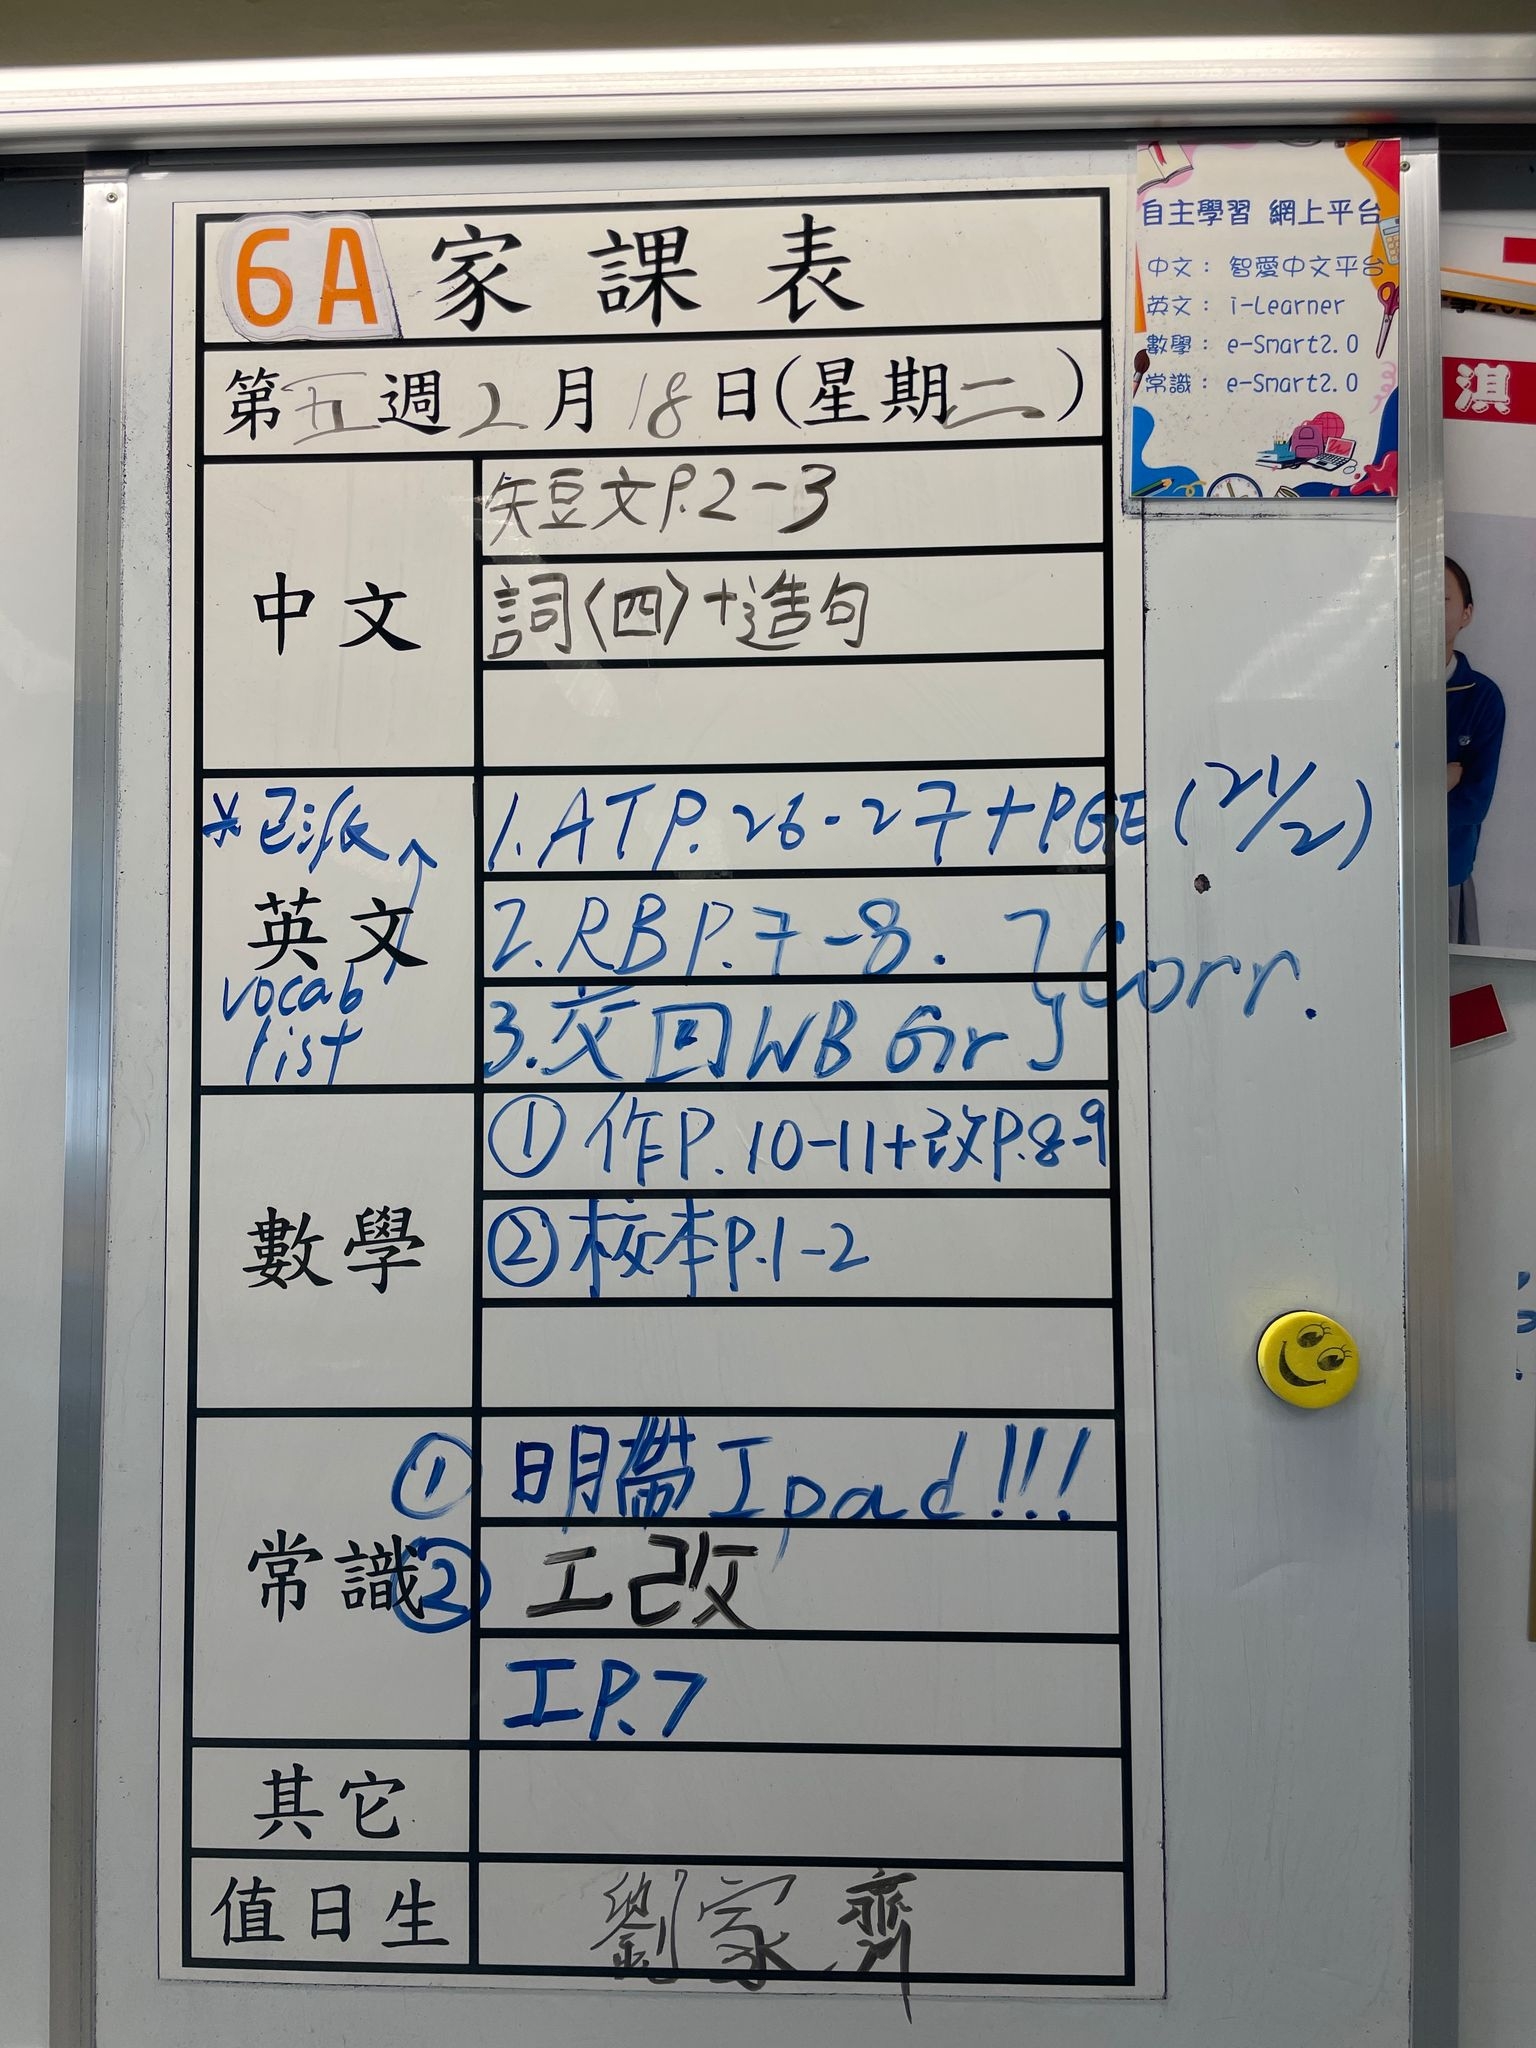 6A 家課表
第五週2月18日(星期二)
中文
短文P.2-3
詞〈四〉+造句
英文
*已派
vocab
list
1.ATP.26-27+PGE(21/2)
2.RBP.7-8.
3.交回WB Gr
}Corr.
數學
①作P.10-11+改P.8-9
②校本P.1-2
常識
①明帶Ipad!!!
②工改
工P.7
其它
值日生
劉家齊
自主學習 網上平台
中文：智愛中文平台
英文：i-Learner
數學：e-Smart2.0
常識：e-Smart2.0
淇